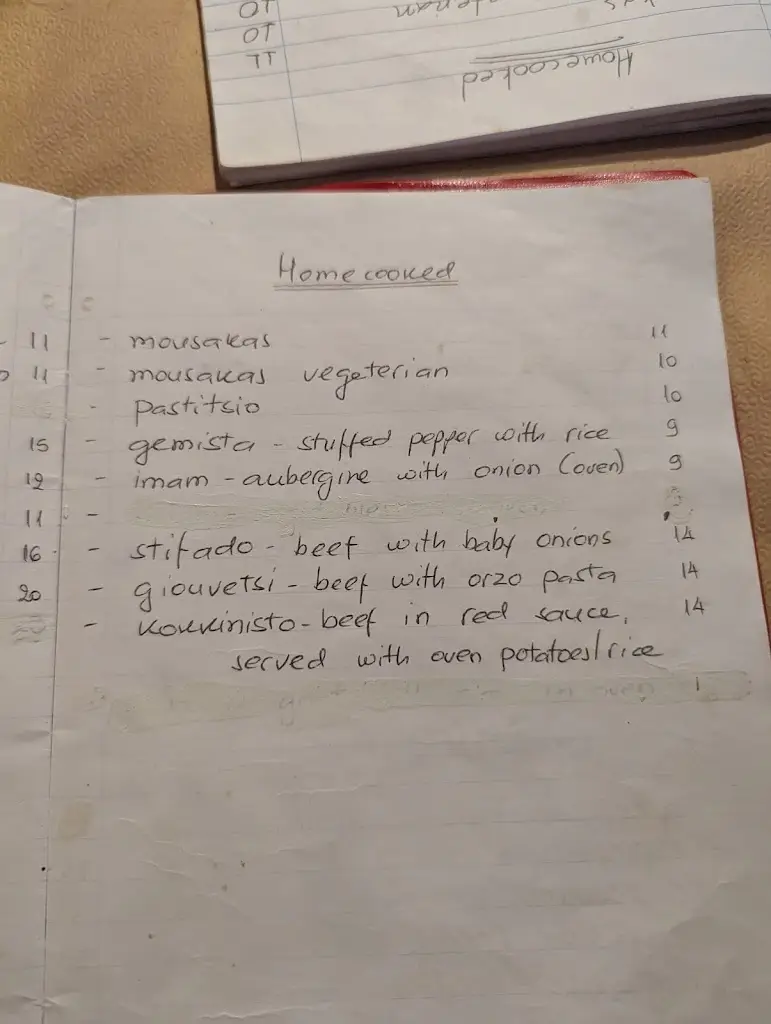 TO
TO
TT
Homecooked
Homecooked
11 - mousakas 11
11 - mousakas vegeterian 10
- pastitsio 10
15 - gemista - stuffed pepper with rice 9
12 - imam - aubergine with onion (oven) 9
11 -
16 - stifado - beef with baby onions 14
20 - giouvetsi - beef with orzo pasta 14
- kokkinisto - beef in red sauce, 14
served with oven potatoes/rice